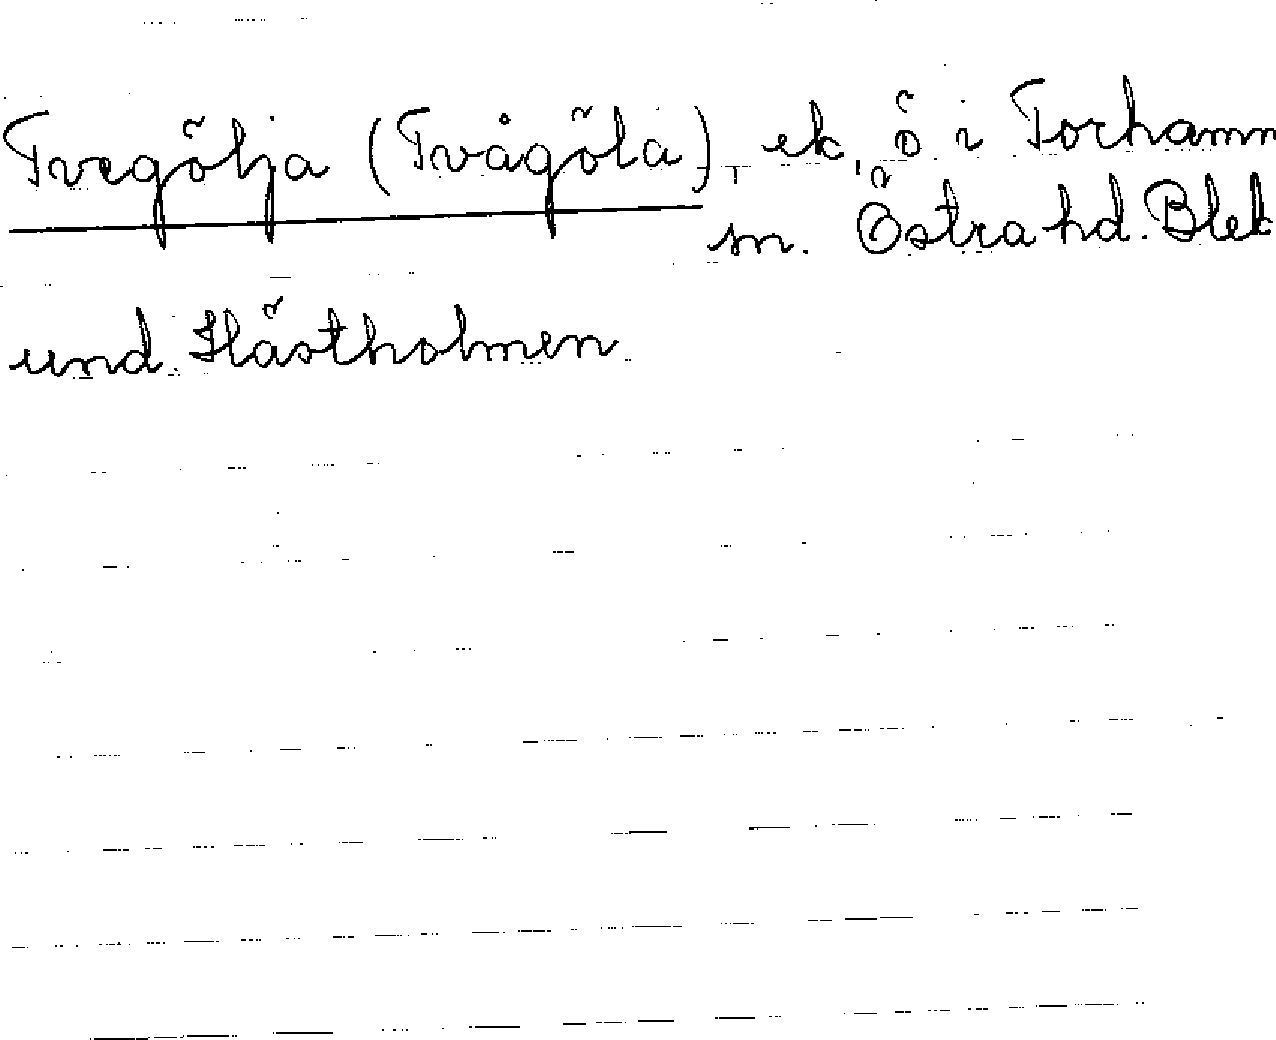 Tvegölja (Tvågöla), ek, ö i Torhamn
sn. Östra hd. Blek
und. Hästholmen